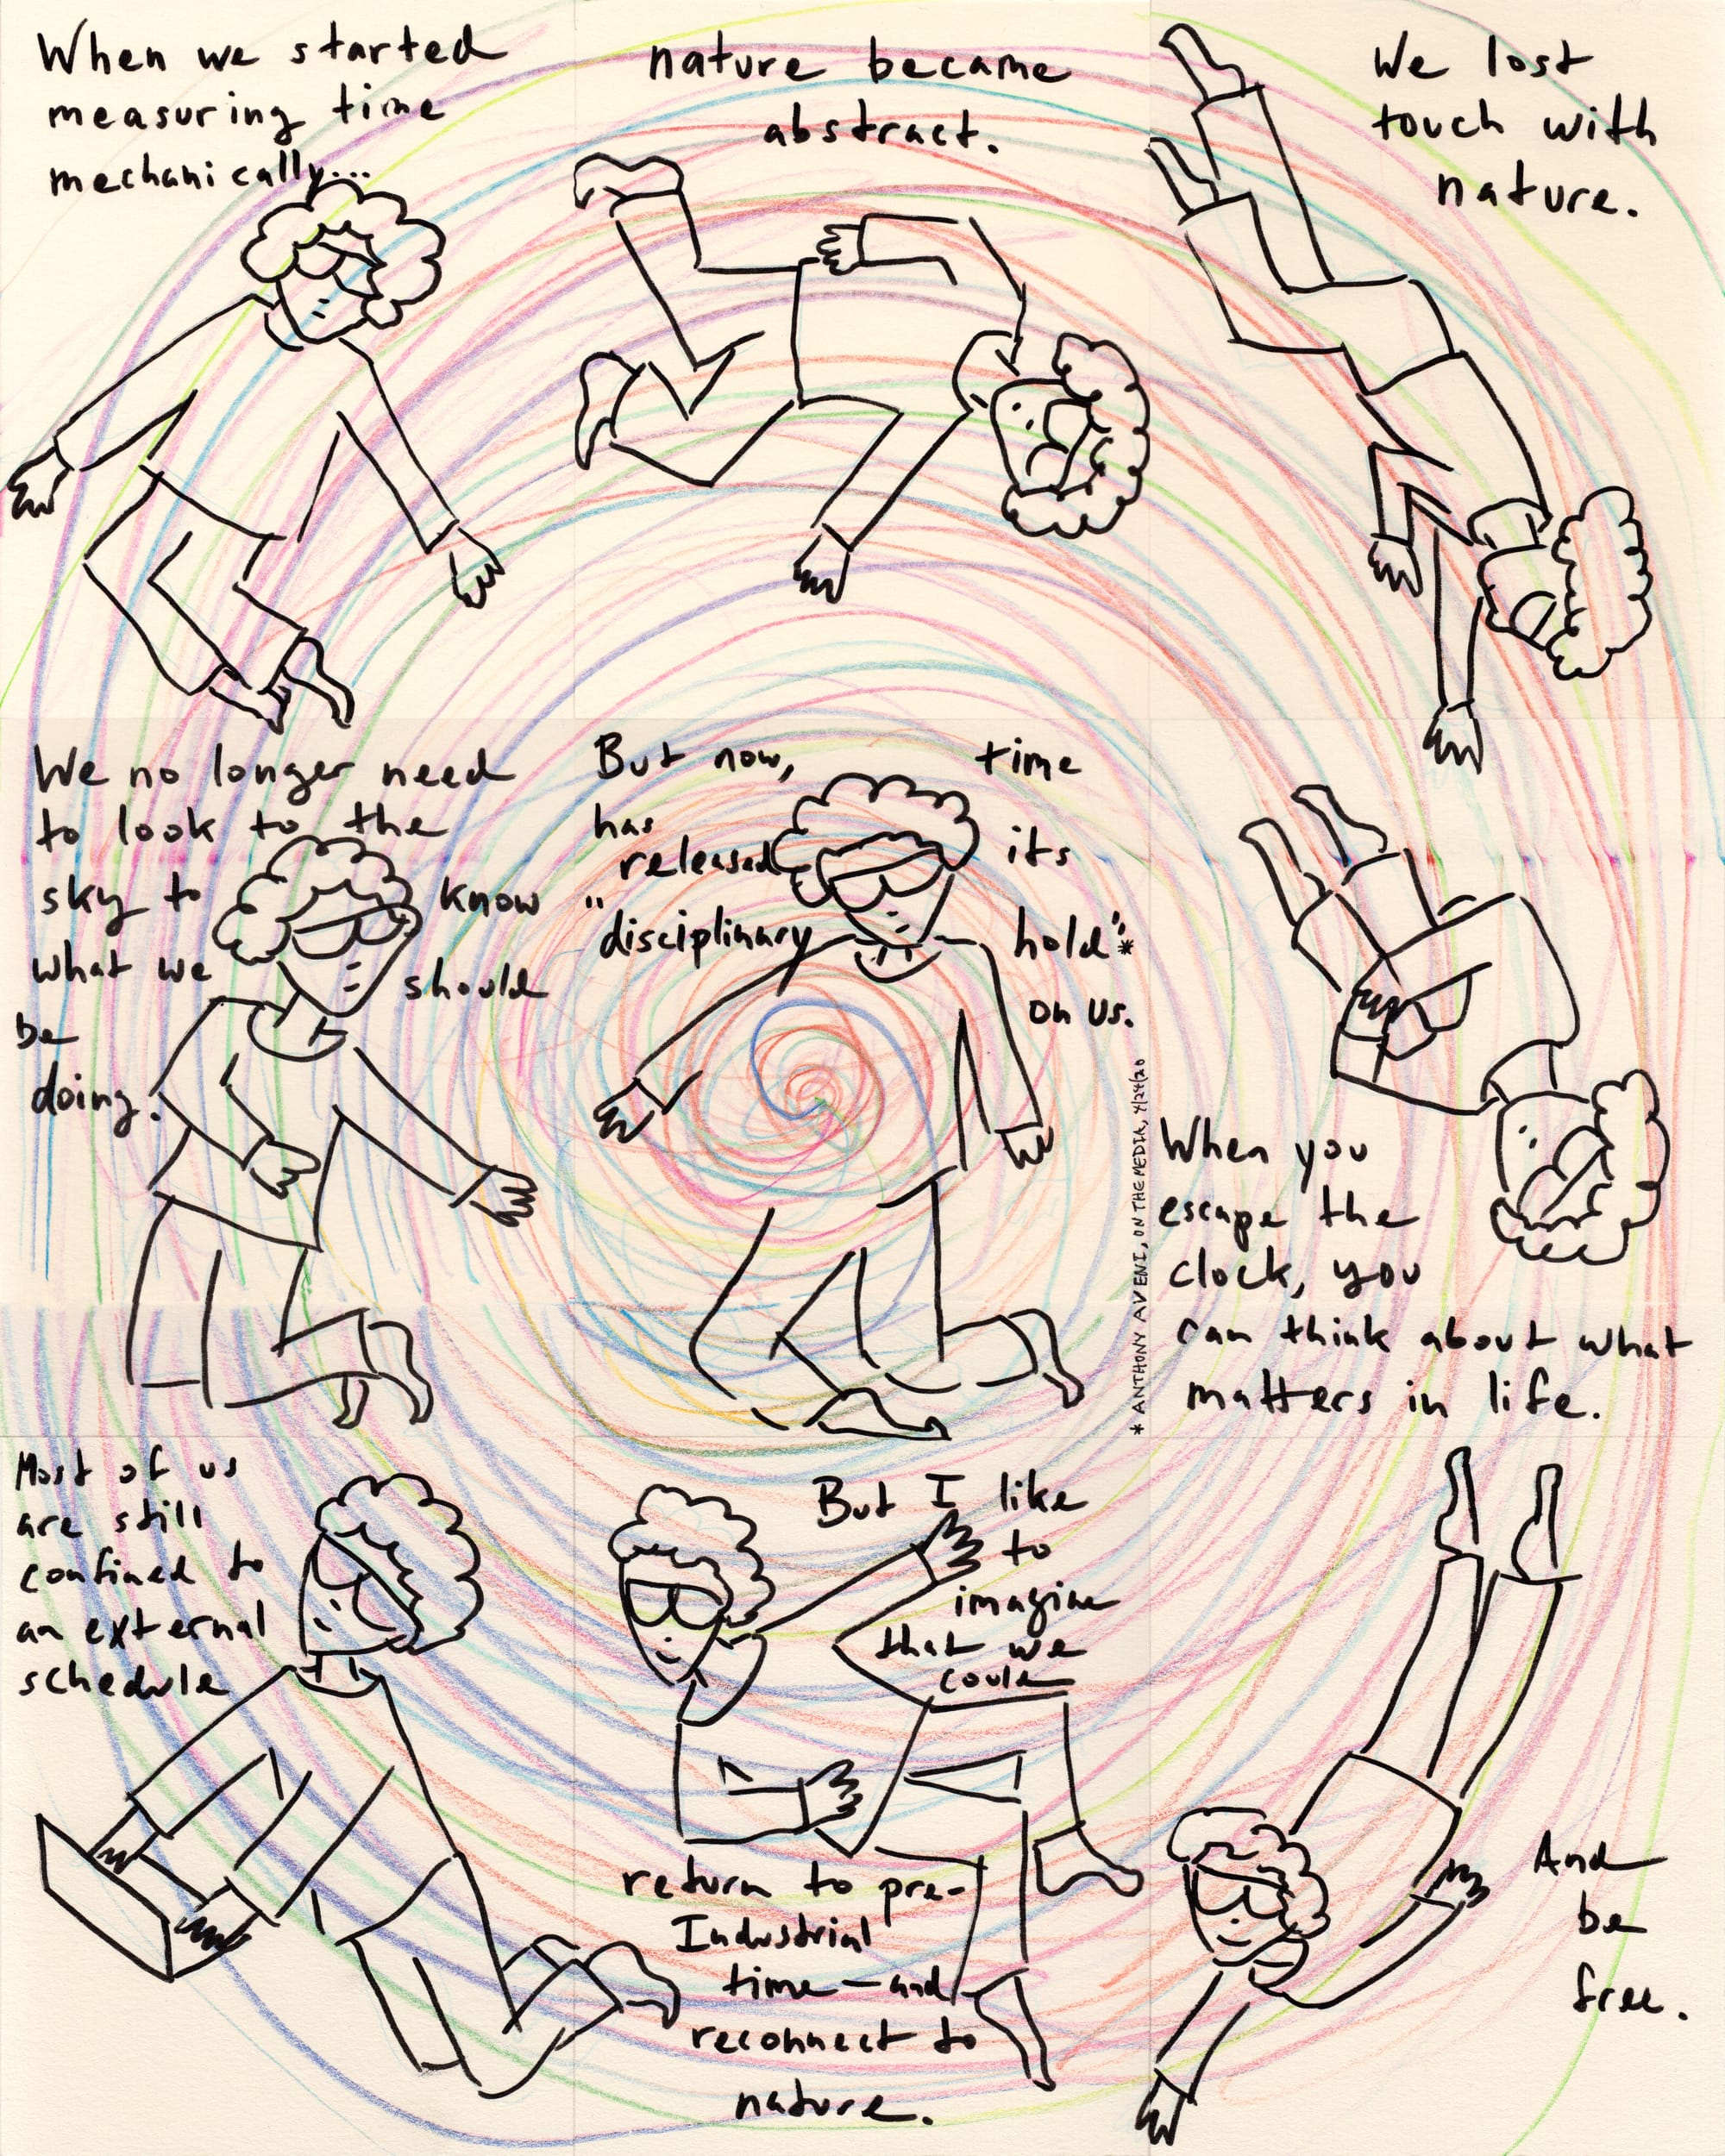 When we started
measuring time
mechanically...
nature became
abstract.
We lost
touch with
nature.
We no longer need
to look to the
sky to know
what we should
be
doing.
But now, time
has its
released
"disciplinary hold"*
on us.
* ANTHONY AVENI, ON THE MEDIA, 4/24/20
When you
escape the
clock, you
can think about what
matters in life.
Most of us
are still
confined to
an external
schedule
But I like
to
imagine
that we
could
return to pre-
Industrial
time — and
reconnect to
nature.
And
be
free.